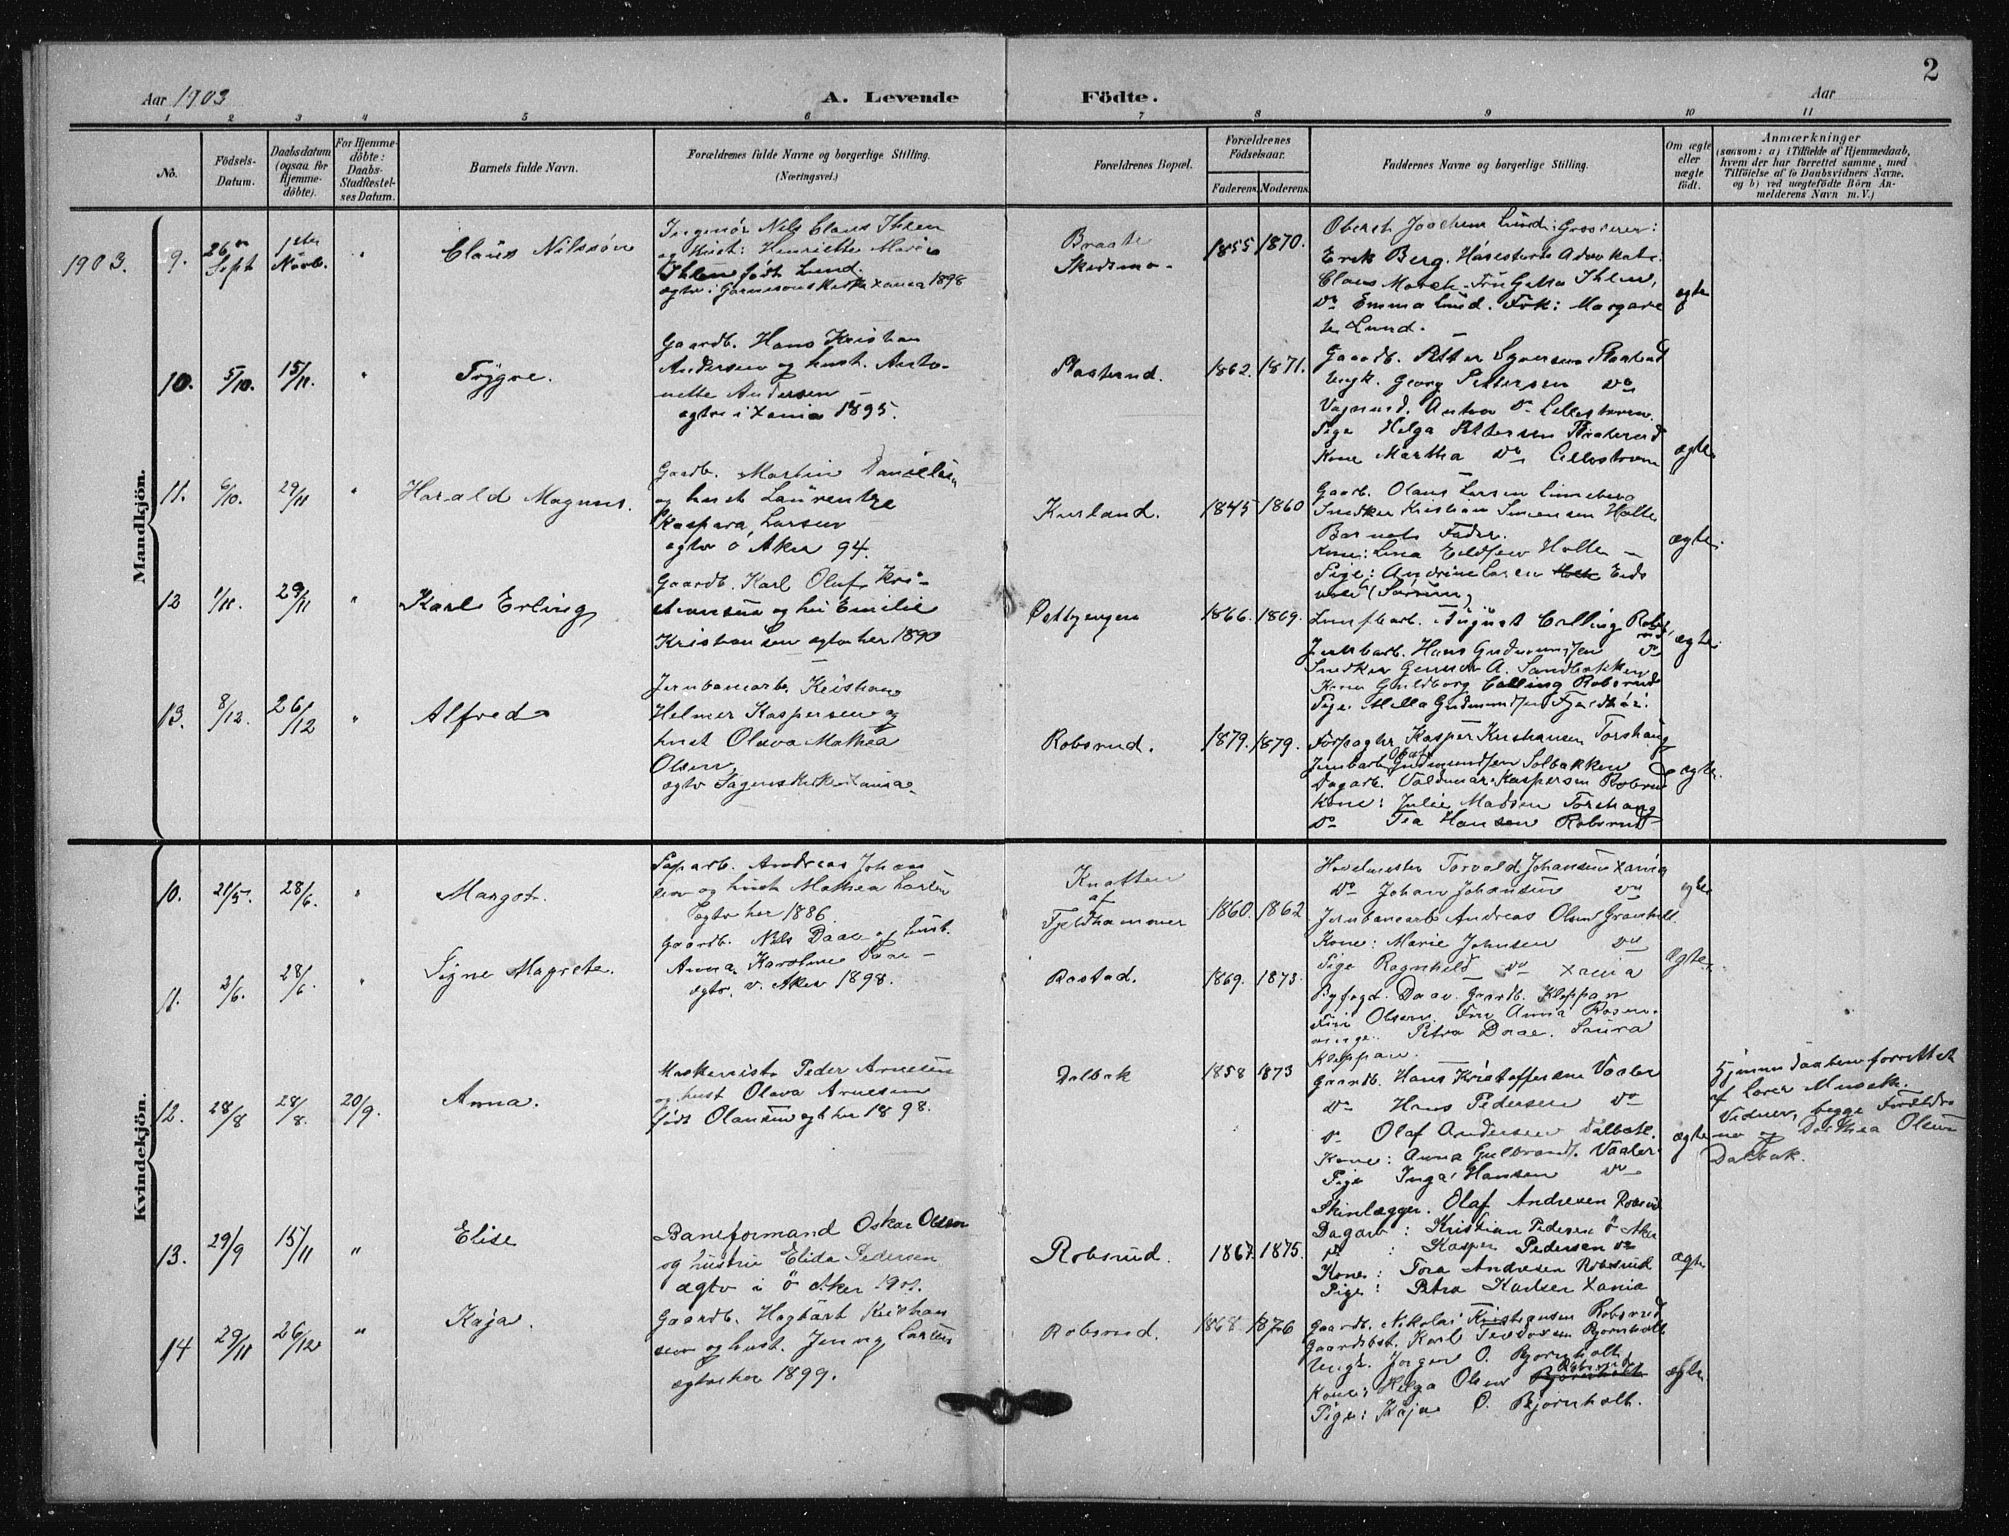 2
Aar 1903
A. Levende Födte.
Aar
1 2 3 4 5 6 7 8 9 10 11
No.
Födsels-Datum.
Daabsdatum (ogsaa for Hjemme-döbte).
For Hjemme-döbte: Daabs-Stadfæstel-ses Datum.
Barnets fulde Navn.
Forældrenes fulde Navne og borgerlige Stilling.
(Næringsvei.)
Forældrenes Bopæl.
Forældrenes Födselsaar.
Faderens. Moderens.
Faddernes Navne og borgerlige Stilling.
Om ægte eller uægte födt.
Anmærkninger
(saasom: a) i Tilfælde af Hjemmedaab,
hvem der har forrettet samme, med
Tilföielse af to Daabsvidners Navne.
og b) ved uægtefödte Börn An-
melderens Navn m. V.)
Mandkjön.
1903. 9. 26 Sept 1ste Novb. " Claus Nilssön
Ingeniör Nils Claus Ihlen
og Hust: Henriette Marie
Ihlen født Lund.
ægtv. i Garnisonskirke Xania 1898
Braate
Skedsmo
1855 1870.
Oberst Joachim Lund: Grosserer:
Erik Berg. Høiesterets Advokat:
Claus Morch
Emma Lund. Frk: Margare
te Lund.
ægte
10. 5/10. 15/11. " Trygve.
Gaardb. Hans Kristian
Andersen og hust. Anto-
nette Andersen
ægtv i Xania 1895.
1862. 1871.
Gaardb. Petter Syversen
Ungk. Georg Pettersen do
Anton do Lillestrøm.
Pige Helga Pettersen
Kone Martha do Lillestrøm
ægte
11. 6/10. 29/11 " Harald Magnus.
Gaardb. Martin Danielsen
og hust Laurentze
Kaspara Larsen
ægtv Ö Aker 94.
Kurland.
1845 1860
Gaarb. Olaus Larsen Linneberg
Snedker Kristian Simensen Holte
Barnets Fader.
Kone: Lina Eilifsen Holte
Pige: Andrine Larsen
(Sørum)
ægte
12 1/11. 29/11 " Karl Erling
Gaardb. Karl Oluf Kri-
stiansen og hu Emilie
Kristiansen ægtv her 1890
Østbyengen
1866. 1869.
August Colling Robs
rud
Jernbarb. Hans Gudmundsen do
Snedker Gunnar A. Sandbakken
Kone Guldborg Colling Robsrud
Pige Milla Gudmundsen
ægte
13. 8/12. 26/12 " Alfred
Jernbanearb. Kristian
Helmer Kaspersen og
hust Olava Mathea
Olsen
ægtv Sagenskirke Xania.
Robsrud.
1879. 1879.
Forpagter Kasper Kristiansen Torshaug
Jernbarb Gudmundsen Solbakken
Dagarb. Valdemar Kaspersen Robsrud
Kone: Julie Madsen Torshaug
do Tea Hansen Robsrud
ægte.
Kvindekjön.
10. 21/5. 28/6. " Margot.
Paparb. Andreas Johan
sen og hust Mathea Larsen
ægtv her 1886.
Knatten
af
Fjeldhammer
1860. 1862
Hovmester Torvald Johansen Xania
do Johan Johansen do
Jernbanearb Andreas Olsen
Kone: Marie Johnsen do
Pige Ragnhild do Xania
ægte
11. 2/6. 28/6. " Signe Magrete.
Gaardb. Nils Daae og hust.
Anna Karoline Daae
ægtv. v. Aker 1898.
1869. 1873.
Byfogd Daae. Gaardb. Kloppan
Olsen. Fru Anna Rosen
Petra Daae. Laura
Kloppan.
ægte.
12. 28/8 28/8. 20/9. Anna.
Maskinist Peder Arnesen
og hust Olava Arnesen
født Olausen ægtv her 1898.
Dalbak
1858 1873
Gaardb. Hans Kristoffersen Vaaler
do Hans Pedersen do
do Olaf Andersen Dalbak.
Kone: Anna Gulbrands. Vaaler
Pige Inga Hansen do
ægte
Hjemmedaaben forrettet
af Lærer
Vidner, begge Forældre
ne og Dorthea Olsen
Dalbak.
13. 29/9 15/11 " Elise
Baneformand Oskar Olsen
og hustru Elida Pedersen
ægtv i Ö Aker 1901.
Robsrud.
1867. 1875.
Skinlægger. Olaf Andresen Robsrud
Dagarb: Kristian Pedersen Ö Aker
do : Kasper Pedersen do
Kone: Tora Andresen Robsrud
Pige: Petra Karlsen Xania
ægte
14 29/11 26/12 " Kaja.
Gaardb. Hagbart Kristian
sen og hust. Jenny Larsen
ægtv her 1899.
Robsrud.
1868. 1876
Gaardb. Nikolai Kristiansen Robsrud
Gaardbst. Karl Teodorsen Bjørnholt
Ungk. Jørgen O. Bjørnholt
Kone: Helga Olsen Robsrud
Pige: Kaja O. Bjørnholt.
ægte